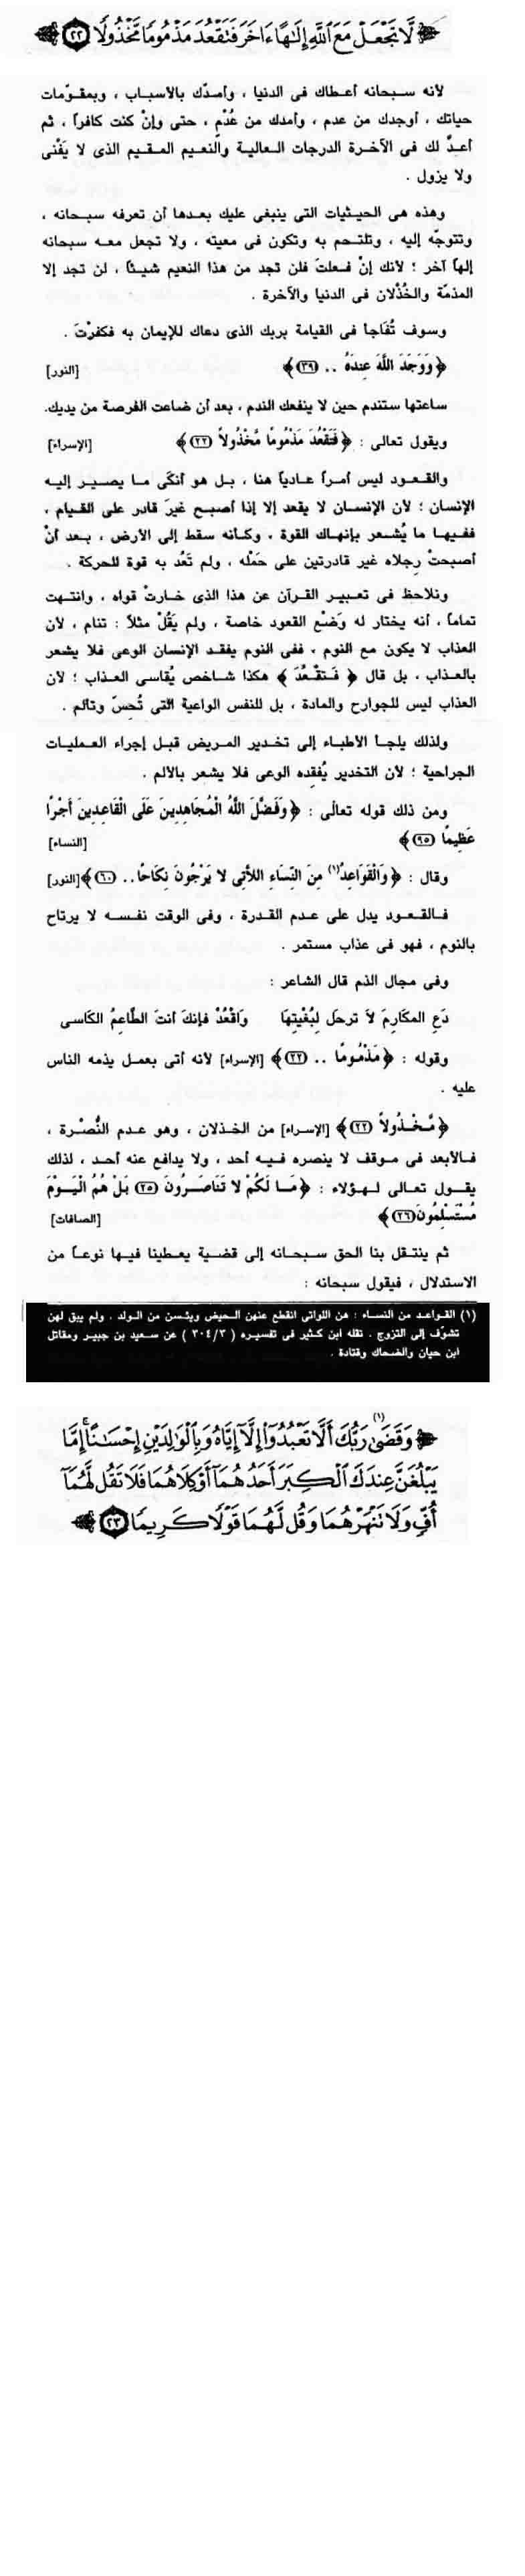 لَّا تَجْعَلْ مَعَ ٱللَّهِ إِلَـٰهًا ءَاخَرَ فَتَقْعُدَ مَذْمُومًا مَّخْذُولًا ٢٢
لأنه سبحانه أعطاك فى الدنيا ، وأمدّك بالأسباب ، وبمقوّمات
حياتك ، أوجدك من عدم ، وأمدك من عُدْمٍ ، حتى وإنْ كنت كافراً ، ثم
أعدَّ لك فى الآخرة الدرجات العالية والنعيم المقيم الذى لا يَفْنى
ولا يزول .
وهذه هى الحيثيات التى ينبغى عليك بعدها أن تعرفه سبحانه ،
وتتوجّه إليه ، وتلتحم به وتكون فى معيته ، ولا تجعل معه سبحانه
إلهاً آخر ؛ لأنك إنْ فعلتَ فلن تجد من هذا النعيم شيئاً ، لن تجد إلا
المذمّة والخُذْلان فى الدنيا والآخرة .
وسوف تُفَاجأ فى القيامة بربك الذى دعاك للإيمان به فكفرْتَ .
﴿ وَوَجَدَ اللَّهَ عِندَهُ .. (٣٩) ﴾ [النور]
ساعتها ستندم حين لا ينفعك الندم ، بعد أن ضاعت الفرصة من يديك.
ويقول تعالى : ﴿ فَتَقْعُدَ مَذْمُومًا مَّخْذُولاً (٢٢) ﴾ [الإسراء]
والقعود ليس أمراً عادياً هنا ، بل هو أنكَى ما يصير إليه
الإنسان ؛ لأن الإنسان لا يقعد إلا إذا أصبح غيرَ قادر على القيام ،
ففيها ما يُشعر بإنهاك القوة ، وكأنه سقط إلى الأرض ، بعد أنْ
أصبحتْ رِجلاه غير قادرتين على حَمْله ، ولم تَعُد به قوة للحركة .
ونلاحظ فى تعبير القرآن عن هذا الذى خارتْ قواه ، وانتهت
تماماً ، أنه يختار له وَضْع القعود خاصة ، ولم يَقُلْ مثلاً : تنام ، لأن
العذاب لا يكون مع النوم ، ففى النوم يفقد الإنسان الوعى فلا يشعر
بالعذاب ، بل قال ﴿ فَتَقْعُدَ ﴾ هكذا شاخص يُقاسى العذاب ؛ لأن
العذاب ليس للجوارح والمادة ، بل للنفس الواعية التى تُحِسّ وتألم .
ولذلك يلجأ الأطباء إلى تخدير المريض قبل إجراء العمليات
الجراحية ؛ لأن التخدير يُفقِده الوعى فلا يشعر بالألم .
ومن ذلك قوله تعالَى : ﴿ وَفَضَّلَ اللَّهُ الْمُجَاهِدِينَ عَلَى الْقَاعِدِينَ أَجْرًا
عَظِيمًا (٩٥) ﴾ [النساء]
وقال : ﴿ وَالْقَوَاعِدُ(١) مِنَ النِّسَاءِ اللاَّتِى لا يَرْجُونَ نِكَاحًا .. (٦٠) ﴾ [النور]
فالقعود يدل على عدم القدرة ، وفى الوقت نفسه لا يرتاح
بالنوم ، فهو فى عذاب مستمر .
وفى مجال الذم قال الشاعر :
دَعِ المكَارِمَ لاَ ترحَل لِبُغْيتِهَا وَاقْعُدْ فإنكَ أنتَ الطَّاعِمُ الكَاسى
وقوله : ﴿ مَذْمُومًا .. (٢٢) ﴾ [الإسراء] لأنه أتى بعمل يذمه الناس
عليه .
﴿ مَّخْذُولاً (٢٢) ﴾ [الإسراء] من الخذلان ، وهو عدم النُّصْرة ،
فالأبعد فى موقف لا ينصره فيه أحد ، ولا يدافع عنه أحد ، لذلك
يقول تعالى لهؤلاء : ﴿ مَا لَكُمْ لا تَنَاصَرُونَ (٢٥) بَلْ هُمُ الْيَوْمَ
مُسْتَسْلِمُونَ (٢٦) ﴾ [الصافات]
ثم ينتقل بنا الحق سبحانه إلى قضية يعطينا فيها نوعاً من
الاستدلال ، فيقول سبحانه :
(١) القواعد من النساء : هن اللواتى انقطع عنهن الحيض ويئسن من الولد . ولم يبق لهن
تشوّف إلى التزوج . نقله ابن كثير فى تفسيره ( ٣٠٤/٣ ) عن سعيد بن جبير ومقاتل
ابن حيان والضحاك وقتادة .
وَقَضَىٰ(١) رَبُّكَ أَلَّا تَعْبُدُوٓا۟ إِلَّآ إِيَّاهُ وَبِٱلْوَٰلِدَيْنِ إِحْسَـٰنًا ۚ إِمَّا
يَبْلُغَنَّ عِندَكَ ٱلْكِبَرَ أَحَدُهُمَآ أَوْ كِلَاهُمَا فَلَا تَقُل لَّهُمَآ
أُفٍّ وَلَا تَنْهَرْهُمَا وَقُل لَّهُمَا قَوْلًا كَرِيمًا ٢٣